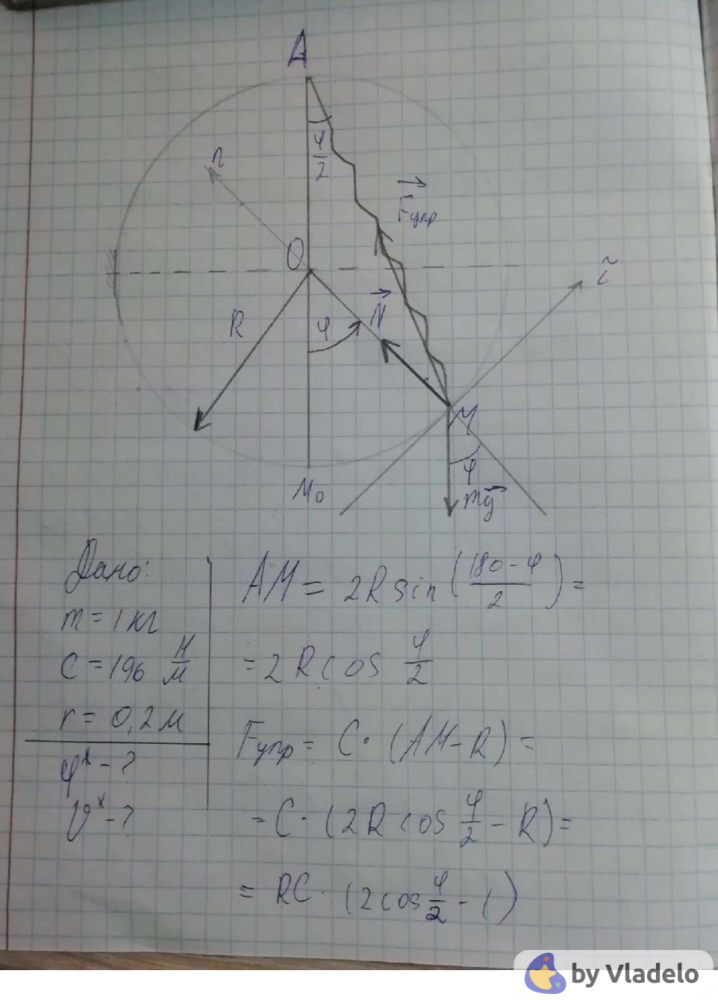 A
φ/2
n
Fупр
O
τ
R
φ
N
M
φ
M₀
mg
Дано:
m = 1 кг
C = 196 Н/м
r = 0,2 м
φˣ - ?
υˣ - ?
AM = 2R sin ((180 - φ)/2) =
= 2R cos φ/2
Fупр = C · (AM - R) =
= C · (2R cos φ/2 - R) =
= RC · (2cos φ/2 - 1)
by Vladelo